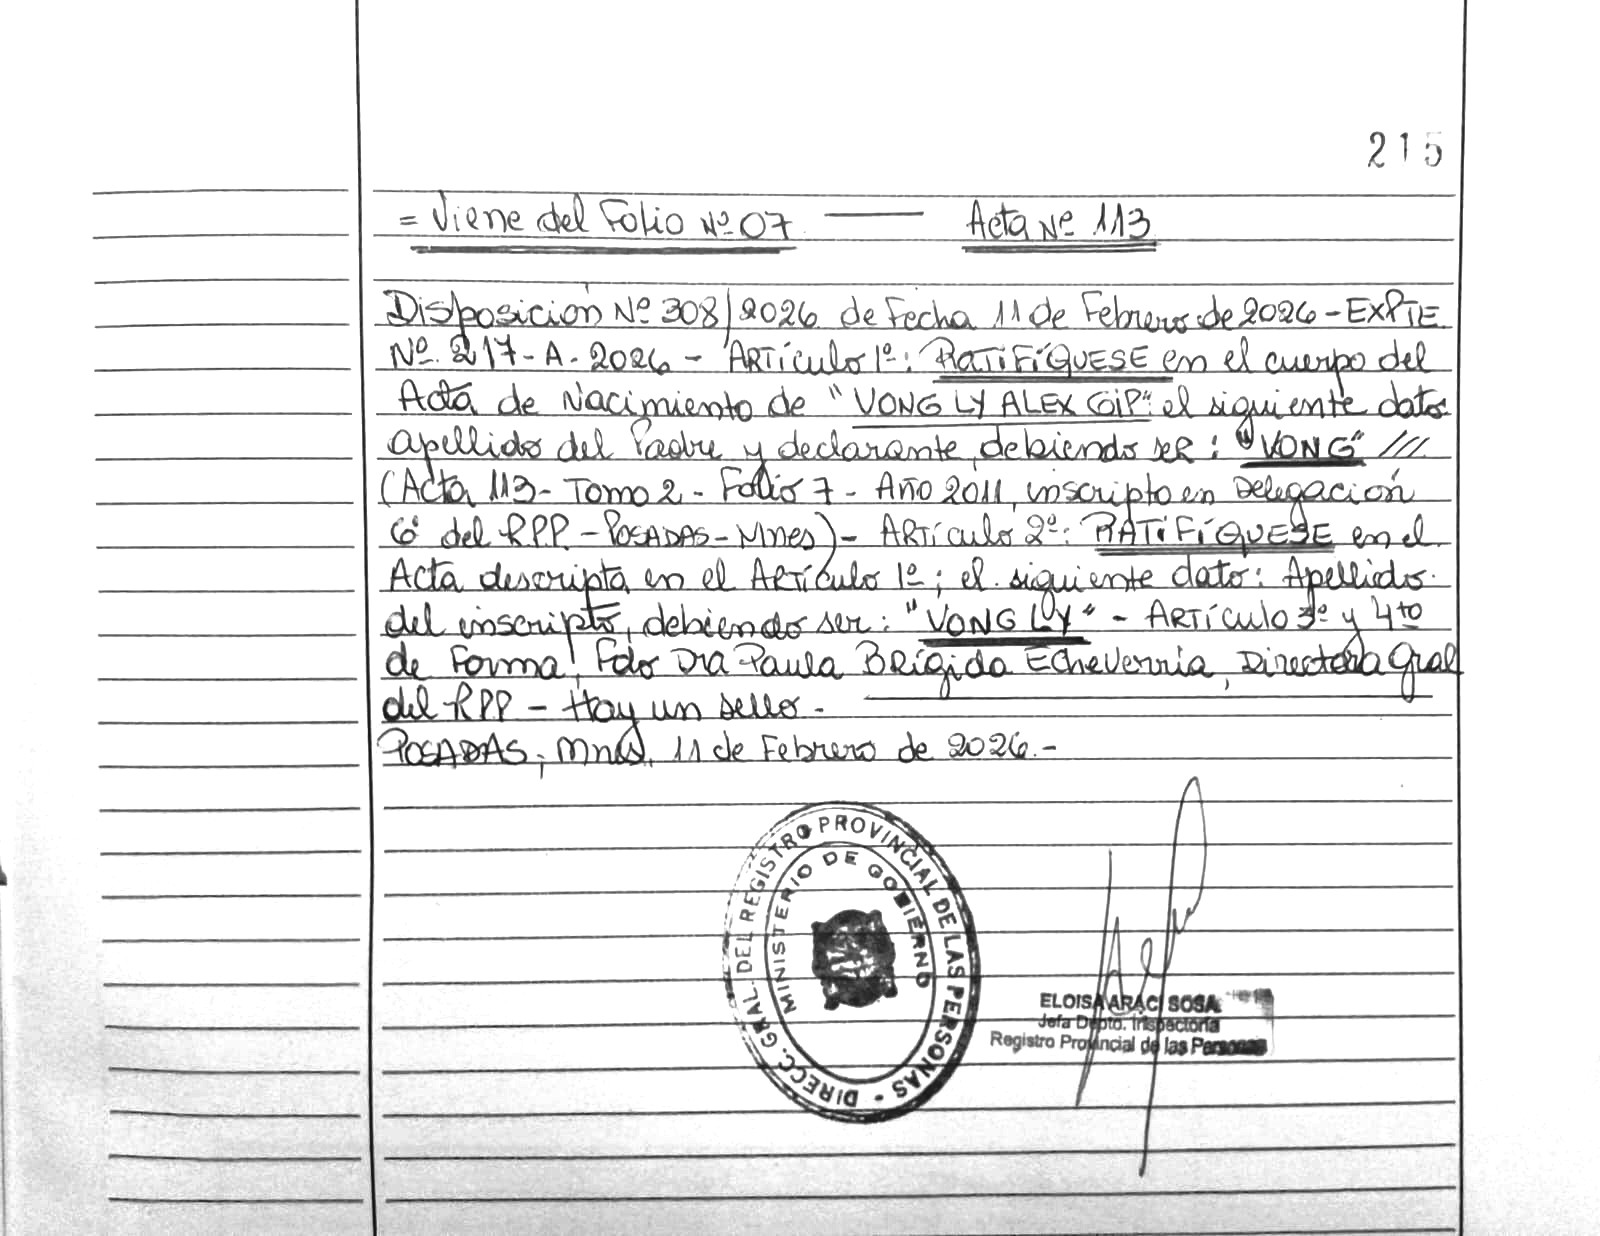 215
= Viene del Folio Nº 07 —— Acta Nº 113
Disposición Nº 308/2026 de Fecha 11 de Febrero de 2026 - EXPTE
Nº 217-A-2026 - ARTículo 1º: RATIFÍQUESE en el cuerpo del
Acta de Nacimiento de "VONG LY ALEX GIP" el siguiente dato
apellido del Padre y declarante, debiendo ser: "VONG" ///
(Acta 113 - Tomo 2 - Folio 7 - Año 2011, inscripto en Delegación
6º del RPP. - POSADAS - Mnes) - ARTículo 2º: RATIFÍQUESE en el
Acta descripta en el ARTículo 1º; el siguiente dato: Apellido
del inscripto, debiendo ser: "VONG LY" - ARTículo 3º y 4to
de Forma, Fdo Dra Paula Brígida Echeverria, Directora Gral
del RPP - Hay un sello -
POSADAS, Mnes, 11 de Febrero de 2026.-
DIRECC. GRAL. DEL REGISTRO PROVINCIAL DE LAS PERSONAS
MINISTERIO DE GOBIERNO
ELOISA ARACI SOSA
Jefa Dpto. Inspectoría
Registro Provincial de las Personas